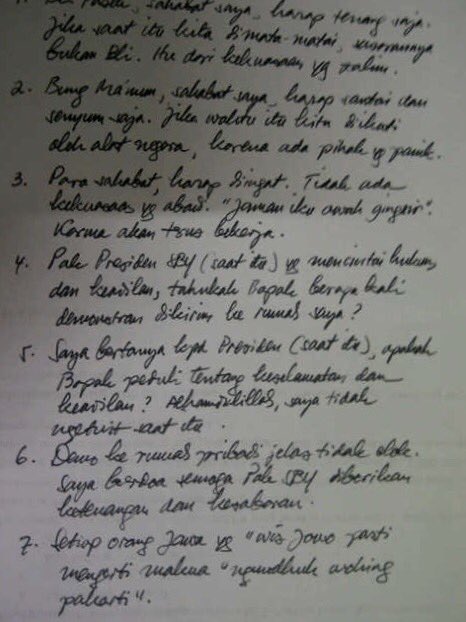 sahabat saya, harap tenang saja.
Jika saat itu kita dimata-matai, sumbernya
bukan Bli. Itu dari kekuasaan yg zalim.
2. Bung Ma'mun, sahabat saya, harap santai dan
senyum saja. Jika waktu itu kita diikuti
oleh alat negara, karena ada pihak yg panik.
3. Para sahabat, harap diingat. Tidak ada
kekuasaan yg abadi. "Jaman iku owah gingsir".
Karma akan terus bekerja.
4. Pak Presiden SBY (saat itu) yg mencintai hukum
dan keadilan, tahukah Bapak berapa kali
demonstran dikirim ke rumah saya?
5. Saya bertanya kpd Presiden (saat itu), apakah
Bapak peduli tentang keselamatan dan
keadilan? Alhamdulillah, saya tidak
ngetwit saat itu.
6. Demo ke rumah pribadi jelas tidak elok.
Saya berdoa semoga Pak SBY diberikan
ketenangan dan kesabaran.
7. Setiap orang Jawa yg "wis Jowo" pasti
mengerti makna "ngundhuh wohing
pakarti".